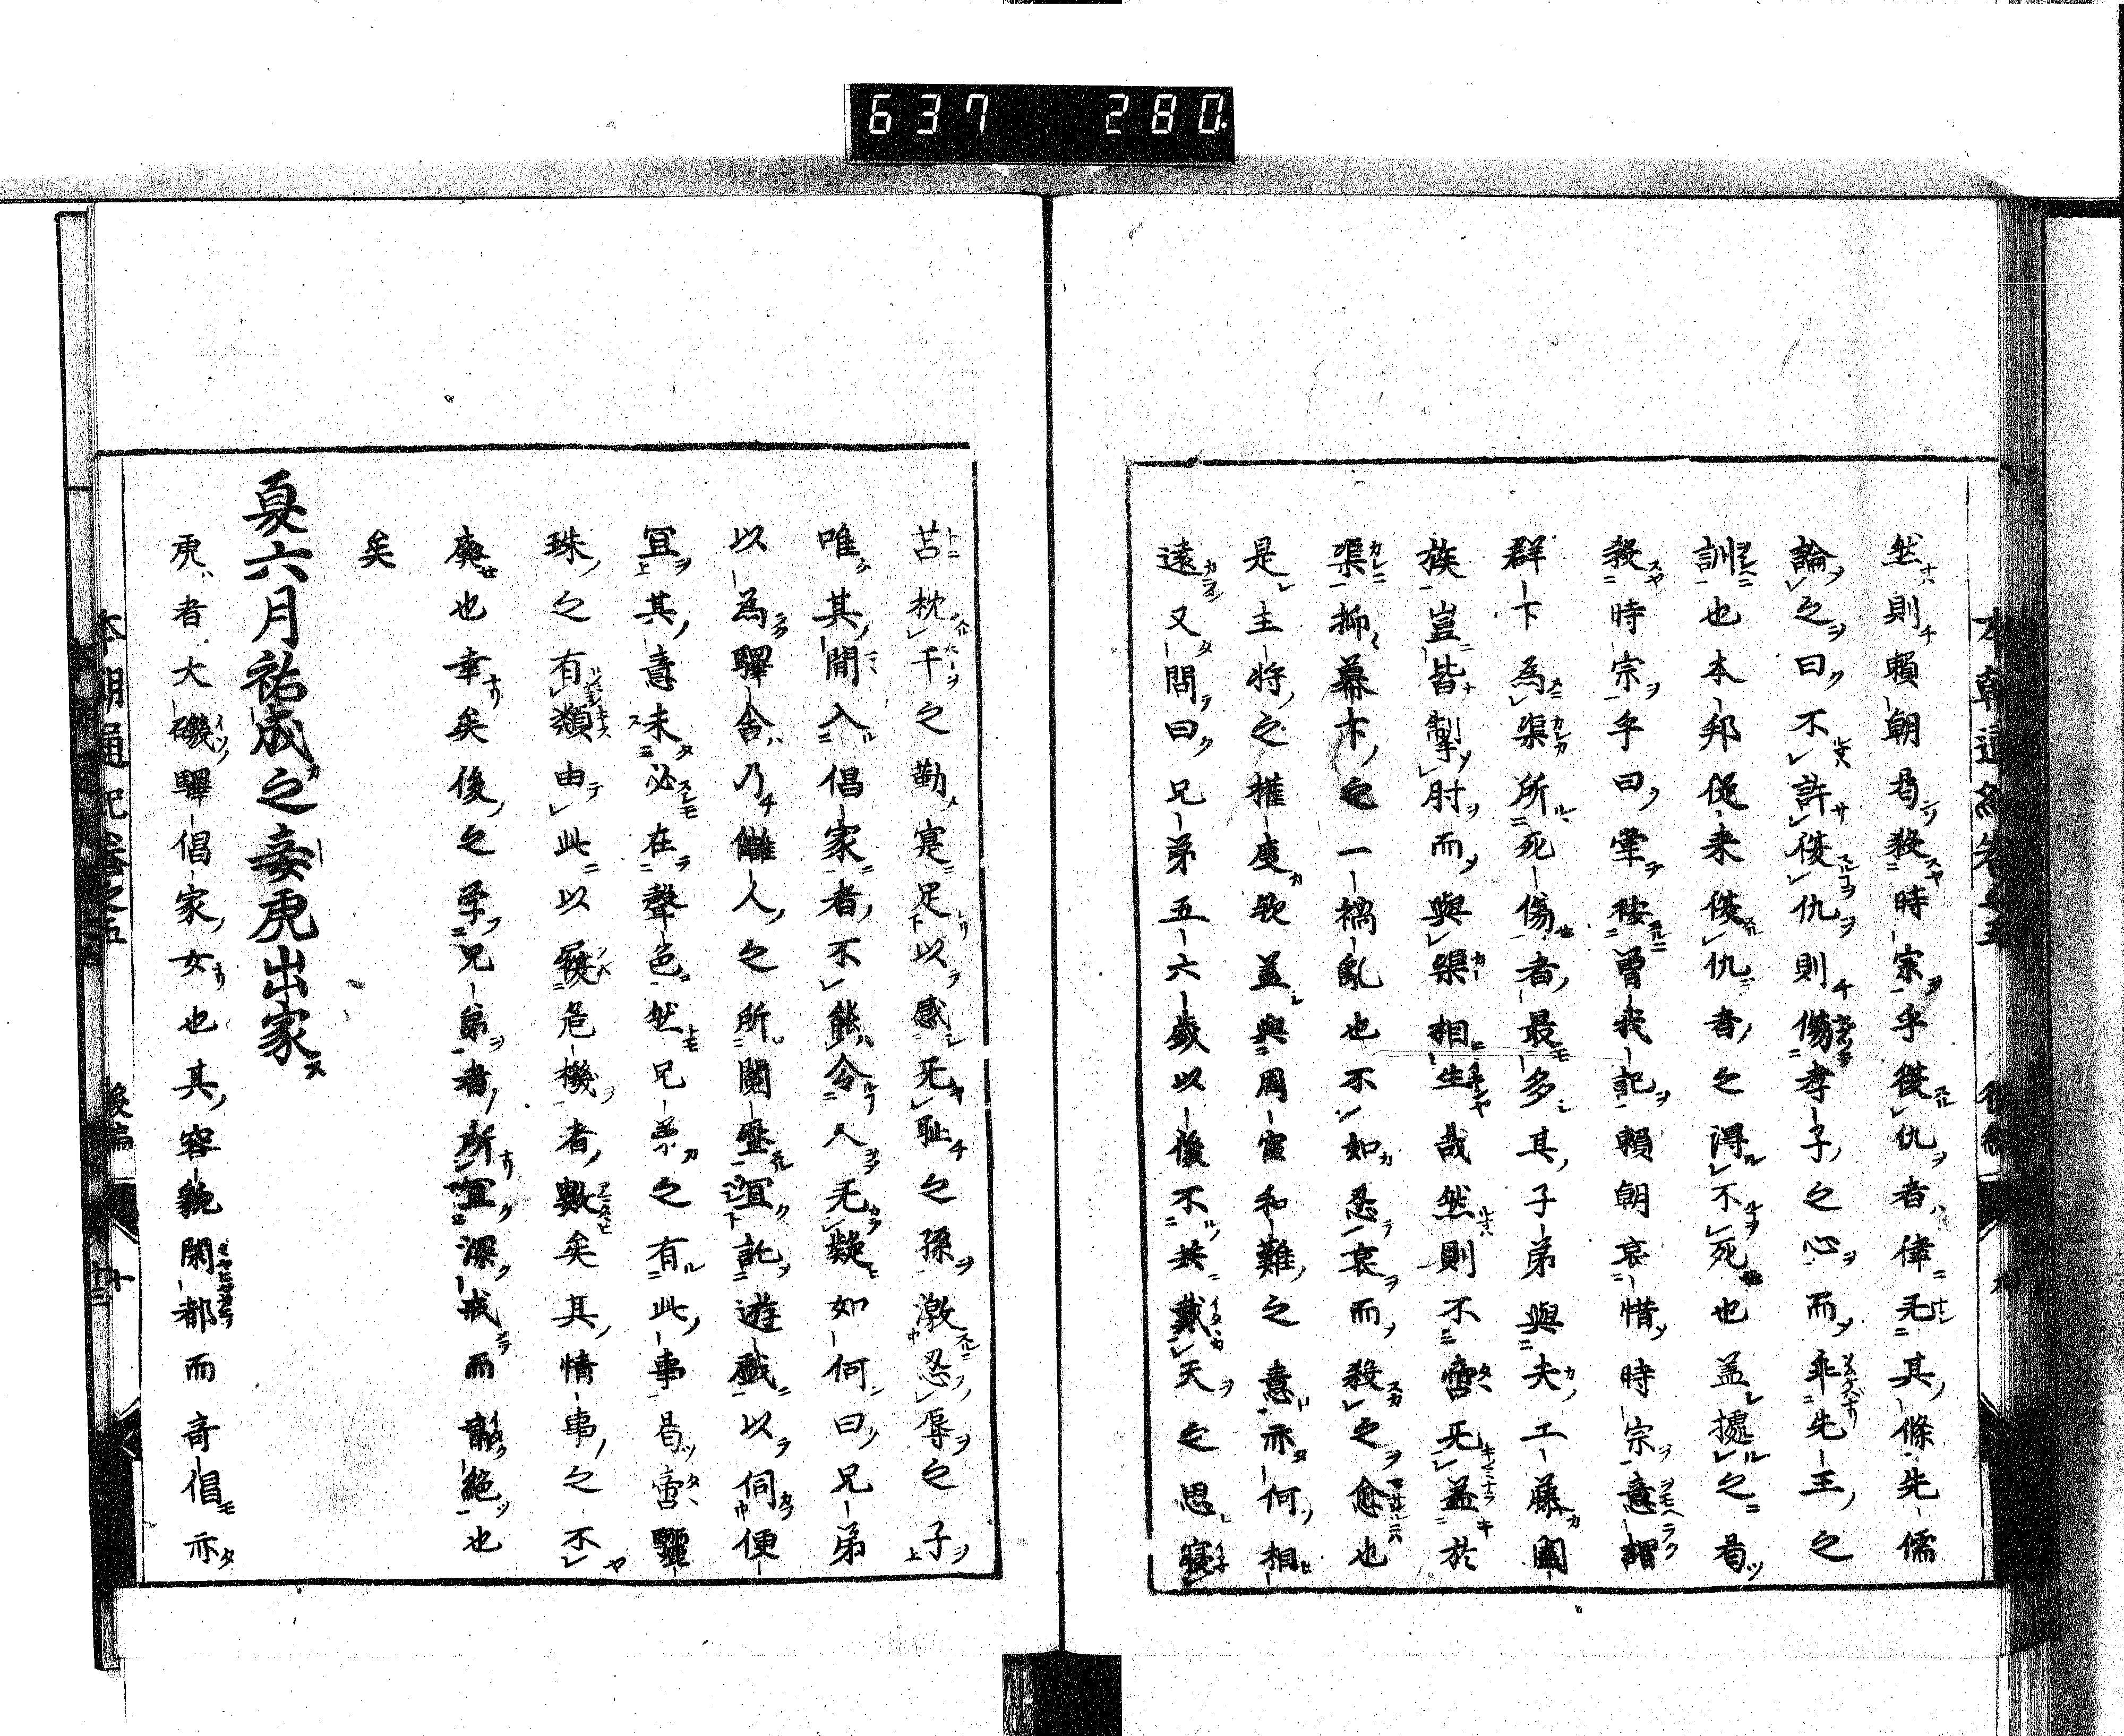 637 280
然則賴朝曷殺時宗乎復仇者偉无其條先儒
論之曰不許復仇則傷孝子之心而乖先王之
訓也本邦從來復仇者之得不死也盖據之曷
殺時宗乎曰嘗按曾我記賴朝哀惜時宗意謂
群下為渠所死傷者最多其子弟與夫工藤國
族豈皆掣肘而與渠相生哉然則不啻无益於
渠抑幕下之一禍亂也不如忍哀而殺之愈也
是主將之權度歟盖與周官和難之意亦何相
遠又問曰兄弟五六歲以後不共戴天之思寢
苫枕干之勤寔足以感无恥之孫激忍辱之子
唯其間入倡家者不能令人无疑如何曰兄弟
以為驛舍乃讎人之所閱歷冝託遊戲以伺便
冝其意未必在聲色然兄弟之有此事曷啻驪
珠之有纇由此以履危機者數矣其情事之不
廢也幸矣後之學兄弟者所冝深戒而斷絕也
矣
夏六月祐成之妾虎出家
虎者大磯驛倡家女也其容貌閑都而奇倡亦
本朝通紀卷之五 後編